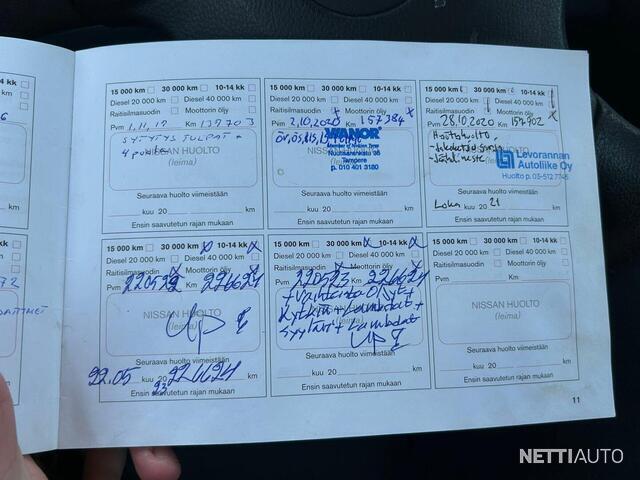 14 kk
15 000 km 30 000 km 10-14 kk
Diesel 20 000 km Diesel 40 000 km
Raitisilmasuodin Moottorin öljy
Pvm 1.11.17 Km 137703
SYTYTYS TULPAT
4 puh
NISSAN HUOLTO
(leima)
Seuraava huolto viimeistään
kuu 20 / km
Ensin saavutetun rajan mukaan
15 000 km 30 000 km 10-14 kk
Diesel 20 000 km Diesel 40 000 km
Raitisilmasuodin x Moottorin öljy x
Pvm 2.10.2020 Km 157384
WANOR
Nuutisarankatu 35
Tampere
p. 010 401 3180
NISSAN HUOLTO
(leima)
Seuraava huolto viimeistään
kuu 20 / km
Ensin saavutetun rajan mukaan
15 000 km 30 000 km 10-14 kk
Diesel 20 000 km Diesel 40 000 km
Raitisilmasuodin Moottorin öljy x
Pvm 28.10.2020 Km 157902
-Jäähneste
Levorannan
Autoliike Oy
Huolto p. 03-512 7745
Seuraava huolto viimeistään
Loka kuu 20 21 / km
Ensin saavutetun rajan mukaan
15 000 km 30 000 km x 10-14 kk x
Diesel 20 000 km Diesel 40 000 km
Raitisilmasuodin x Moottorin öljy x
Km 226624
NISSAN HUOLTO
(leima)
Seuraava huolto viimeistään
22.05 kuu 20 23 226624 km
Ensin saavutetun rajan mukaan
15 000 km 30 000 km x 10-14 kk x
Diesel 20 000 km Diesel 40 000 km
Raitisilmasuodin x Moottorin öljy x
220523 226624
Seuraava huolto viimeistään
kuu 20 / km
Ensin saavutetun rajan mukaan
15 000 km 30 000 km 10-14 kk
Diesel 20 000 km Diesel 40 000 km
Raitisilmasuodin Moottorin öljy
Pvm Km
NISSAN HUOLTO
(leima)
Seuraava huolto viimeistään
kuu 20 / km
Ensin saavutetun rajan mukaan
11
NETTIAUTO